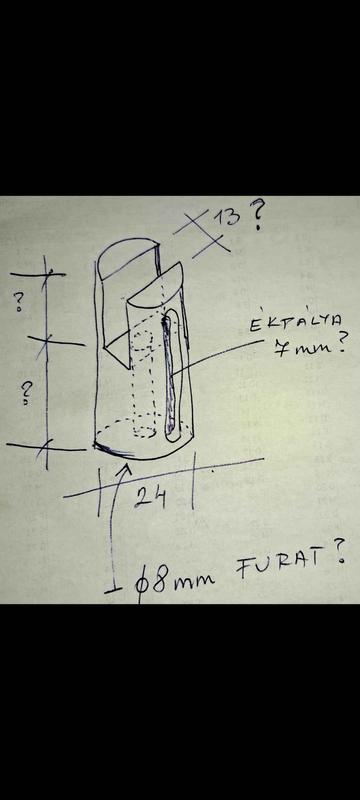 13?
?
ÉKPÁLYA
7mm?
?
24
ϕ8mm FURAT?